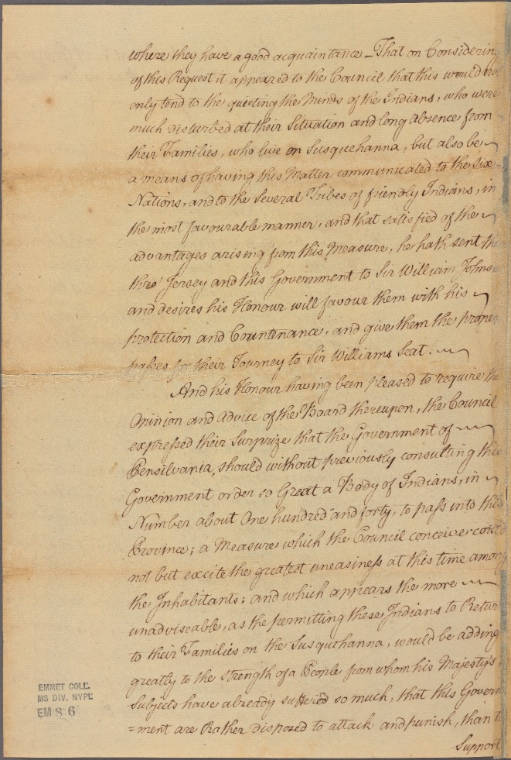 where they have a good acquaintance _ That on Considering
of this Request it appeared to the Council that this would not
only tend to the quieting the Minds of the Indians, who were
much disturbed at their Situation and long Absence from
their Families, who live on Susquehanna, but also be
a means of having this Matter communicated to the Six
Nations, and to the Several Tribes of friendly Indians, in
the most favourable manner, and that satisfied of the
advantages arising from this Measure, he hath sent them
thro' Jersey and this Government to Sir William Johnson
and desires his Honour will favour them with his
protection and Countenance, and give them the proper
passes for their Journey to Sir Williams Seat.
And his Honour having been pleased to require the
Opinion and Advice of the Board thereupon, the Council
expressed their Surprize that the Government of
Pensilvania, should without previously consulting this
Government order so Great a Body of Indians, in
Number about One hundred and forty, to pass into this
Province; a Measure which the Council conceive could
not but excite the greatest uneasiness at this time among
the Inhabitants: and which appears the more
unadviseable, as the permitting these Indians to Return
to their Families on the Susquehanna, would be adding
greatly to the Strength of a People from whom his Majesty's
Subjects have already suffered so much, that this Govern
=ment are Rather disposed to attack and punish, than to
Support
EMMET COLL.
MS DIV. NYPL
EM 86